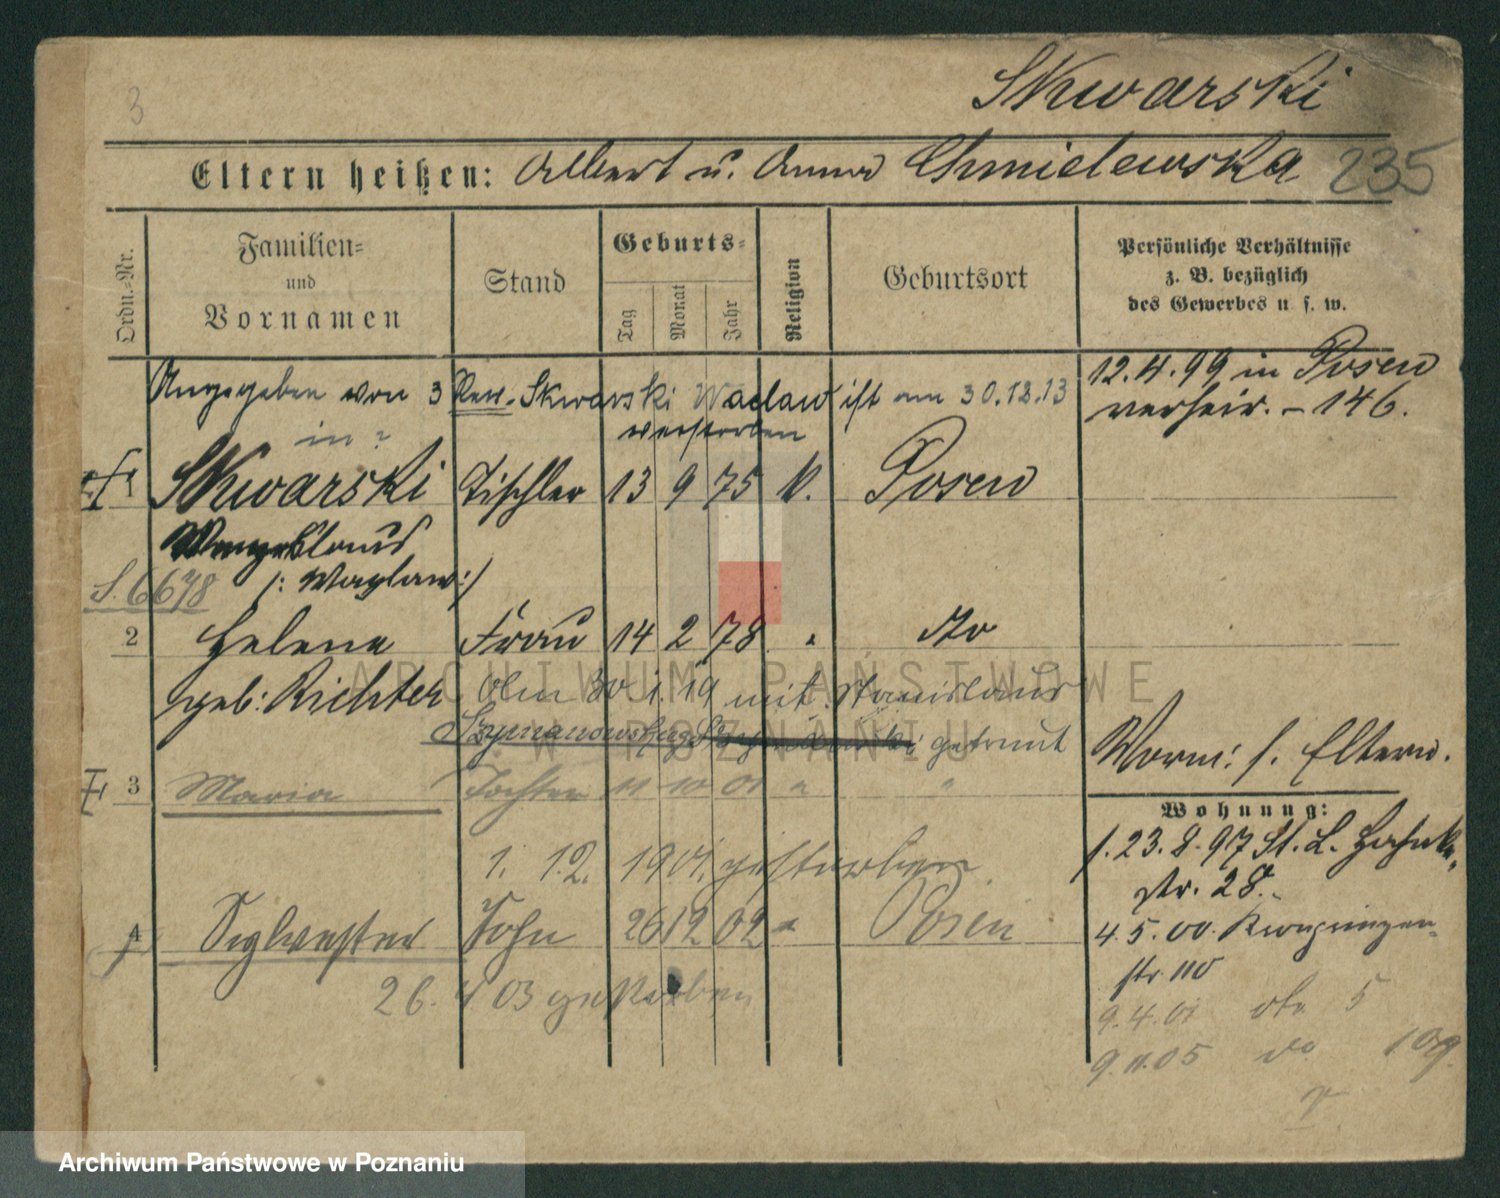 3
Skwarski
Eltern heißen: Albert u. Anna Chmielewska 235
Ordn.-Nr.
Familien-
und
Vornamen
Stand
Geburts-
Tag
Monat
Jahr
Religion
Geburtsort
Persönliche Verhältnisse
z. B. bezüglich
des Gewerbes u s. w.
Angegeben von 3 Rev. Skwarski Waclaw ist am 30.12.13
in ? verstorben
12.4.99 in Posen
verheir. – 146.
1 Skwarski Tischler 13 9 75 k. Posen
Wenzeslaus
S. 6678 /: Waclaw :/
2 Helena Frau 14 2 78 " do
geb: Richter Am 30.1.19 mit Stanislaus
Szymanowski getraut
Worm: s. Eltern.
3 Maria Tochter 11 10 01 " "
1. 12. 1901 gestorben
4 Sylvester Sohn 26 12 02 " Posen
26. 4 03 gestorben
Wohnung:
1. 23.8.97 St. L.
str. 28.
4.5.00.
str 110
9.4.01 5
9.11.05 do 109
ARCHIWUM PAŃSTWOWE
W POZNANIU
Archiwum Państwowe w Poznaniu